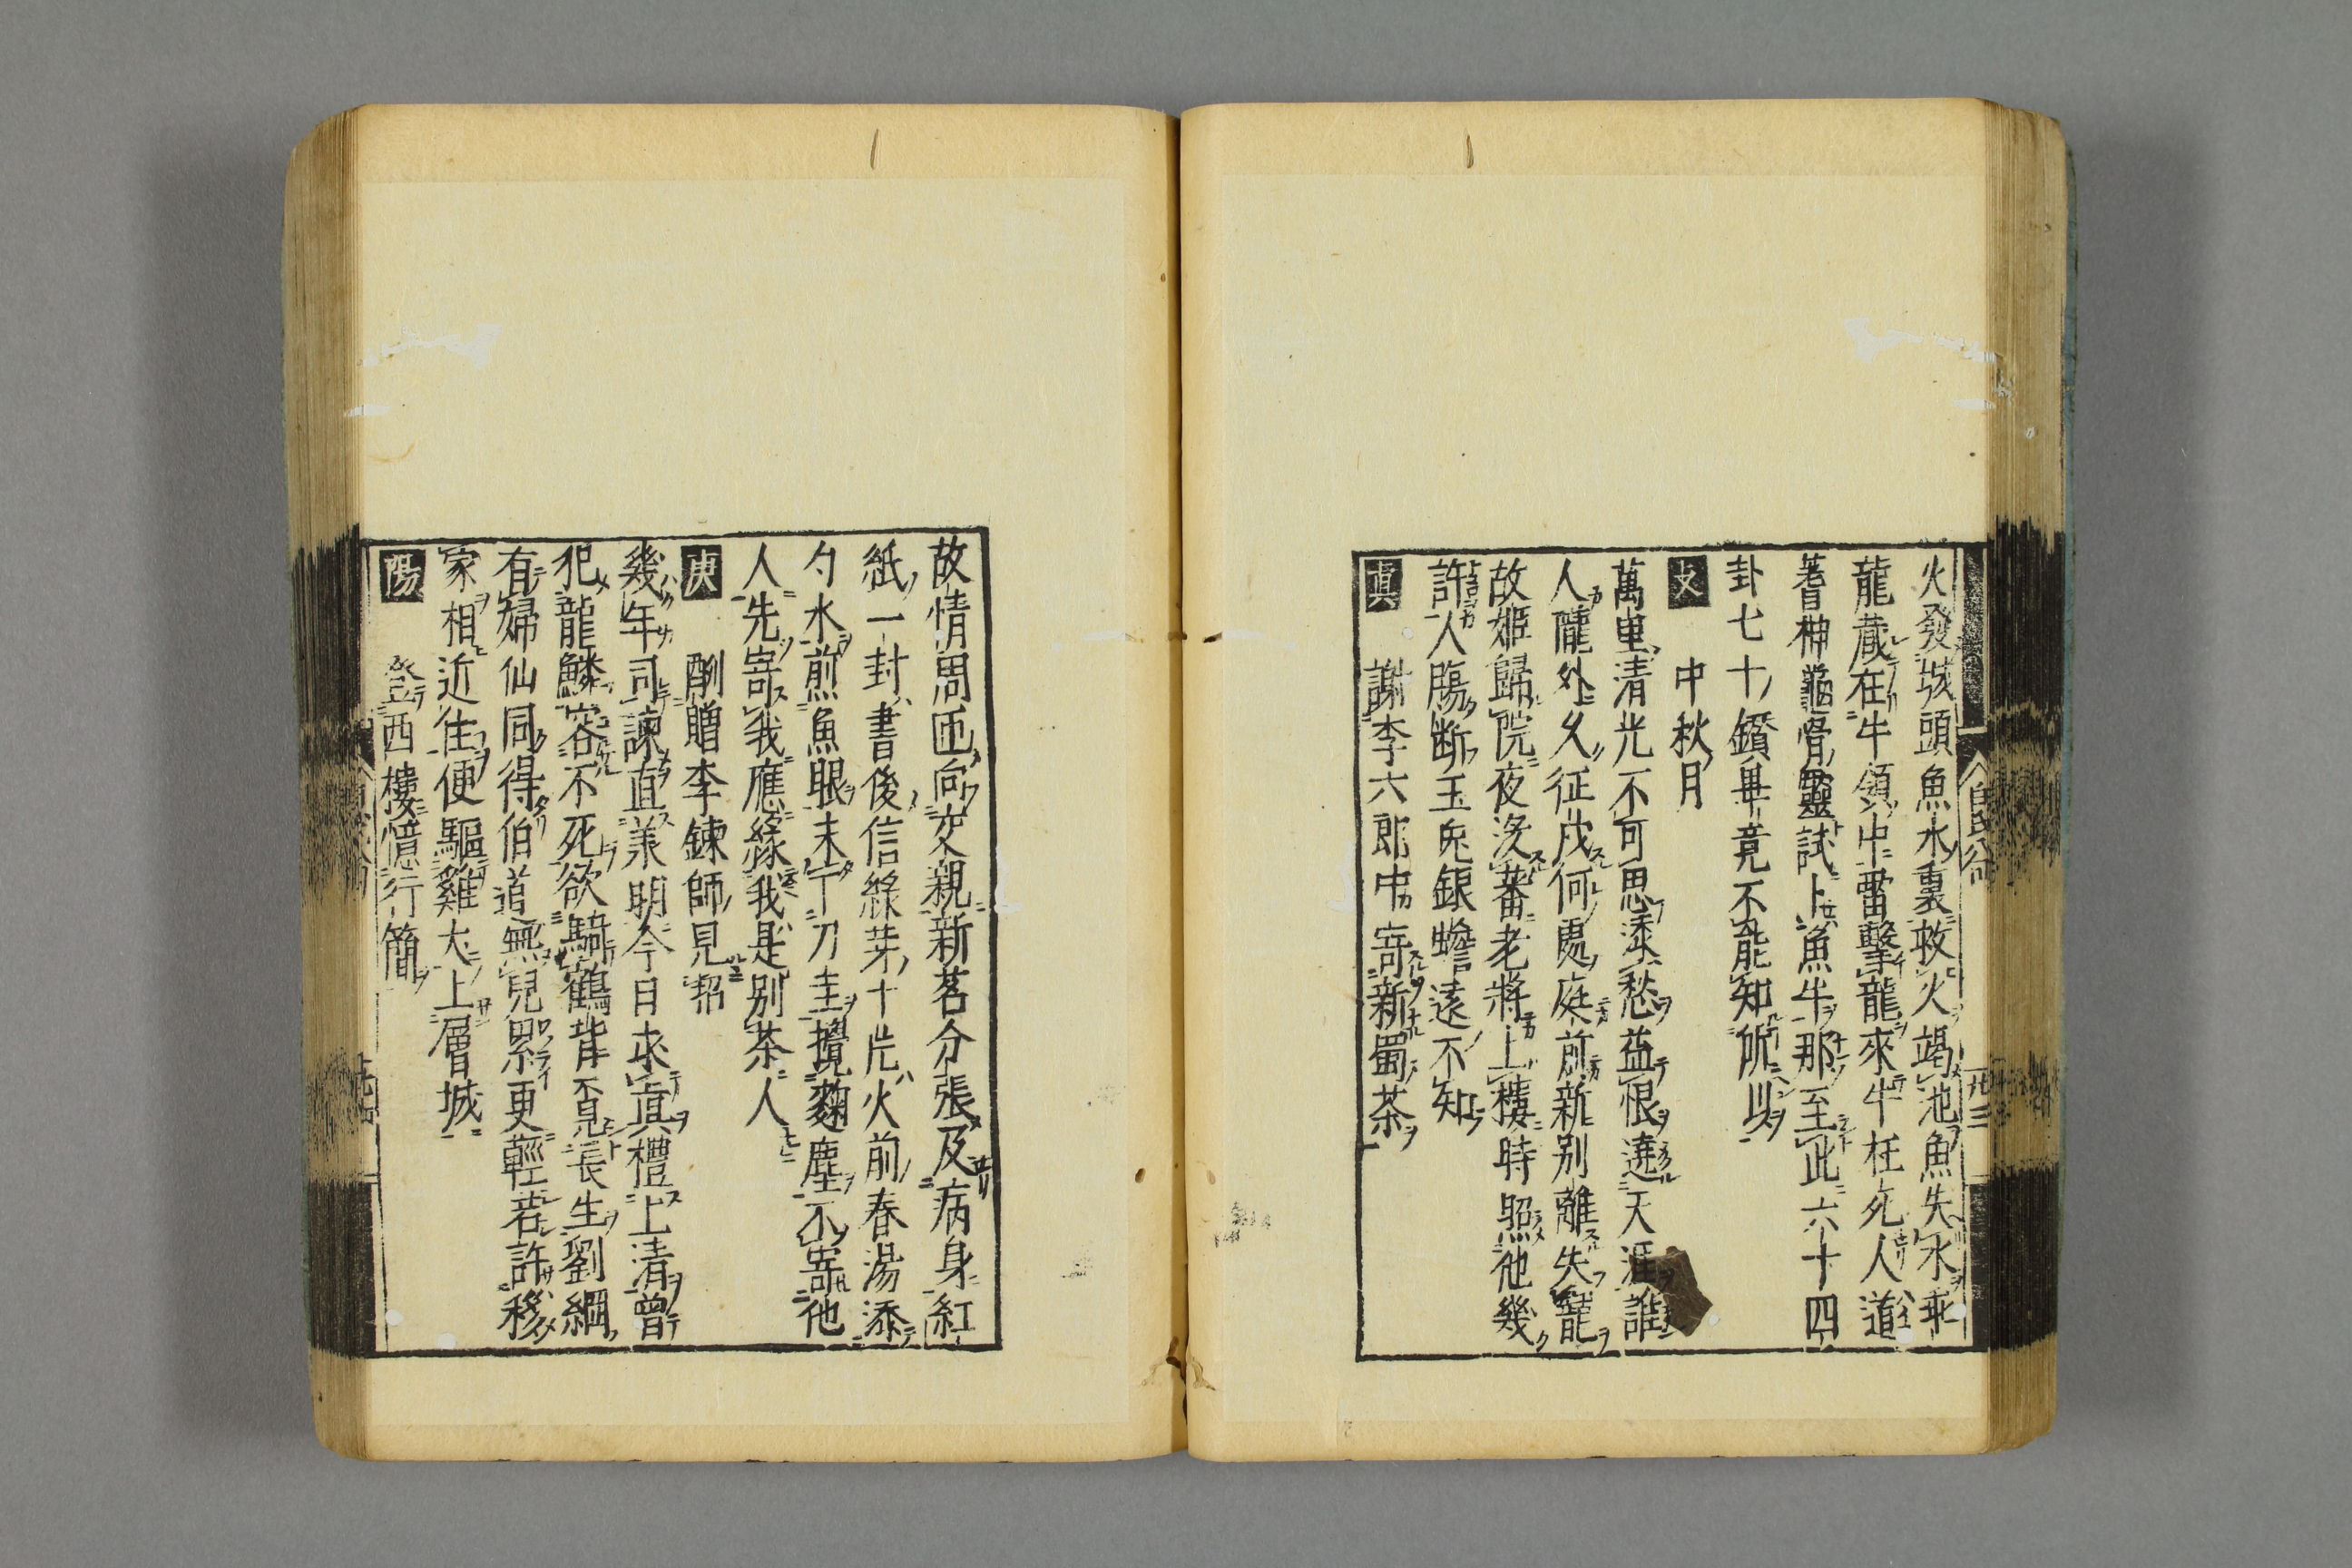 火發城頭魚水裏救火竭池魚失水乖
龍藏在牛領中雷擊龍來牛枉死人道
蓍神龜骨靈試卜魚牛那至此六十四
卦七十鑽畢竟不能知所以
文 中秋月
萬里清光不可思添愁益恨遶天涯誰
人隴外久征戍何處庭前新别離失寵
故姬歸院夜没蕃老將上樓時照他幾
許人腸断玉兎銀蟾遠不知
真 謝李六郎中寄新蜀茶
故情周匝向交親新茗分張及病身紅
紙一封書後信綠芽十片火前春湯添
勺水煎魚眼末下刀圭攪麹塵不寄他
人先寄我應緣我是别茶人
庚 酬贈李錬師見招
幾年司諫直羕明今日求真禮上清曾
犯龍鱗容不死欲騎鶴背覔長生劉綱
有婦仙同得伯道無兒累更輕若許移
家相近住便驅雞犬上層城
陽 登西樓憶行簡